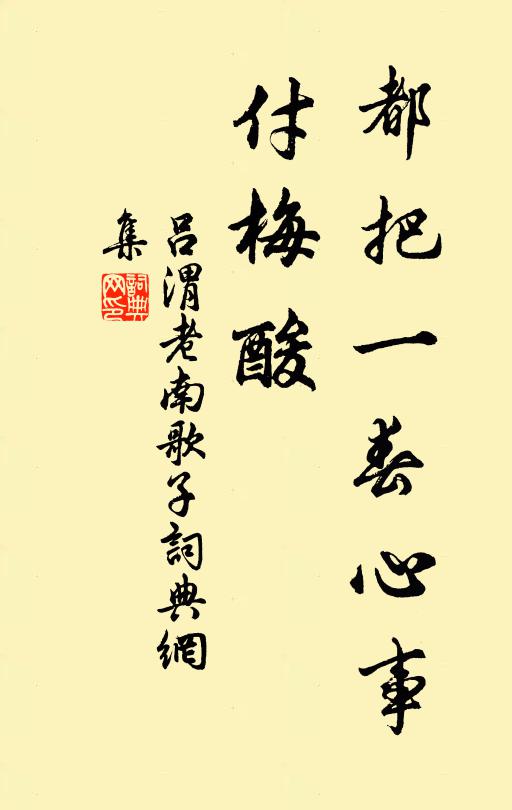 都把一春心事
付梅酸
吕渭老南歌子詞典網
集
詞典
网印